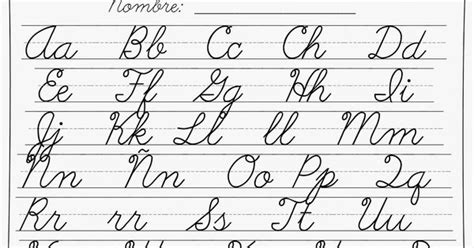 Nombre: ____________
Aa Bb Cc Ch Dd
Ee Ff Gg Hh Ii
Jj Kk Ll ll Mm
Nn Ññ Oo Pp Qq
Rr rr Ss Tt Uu